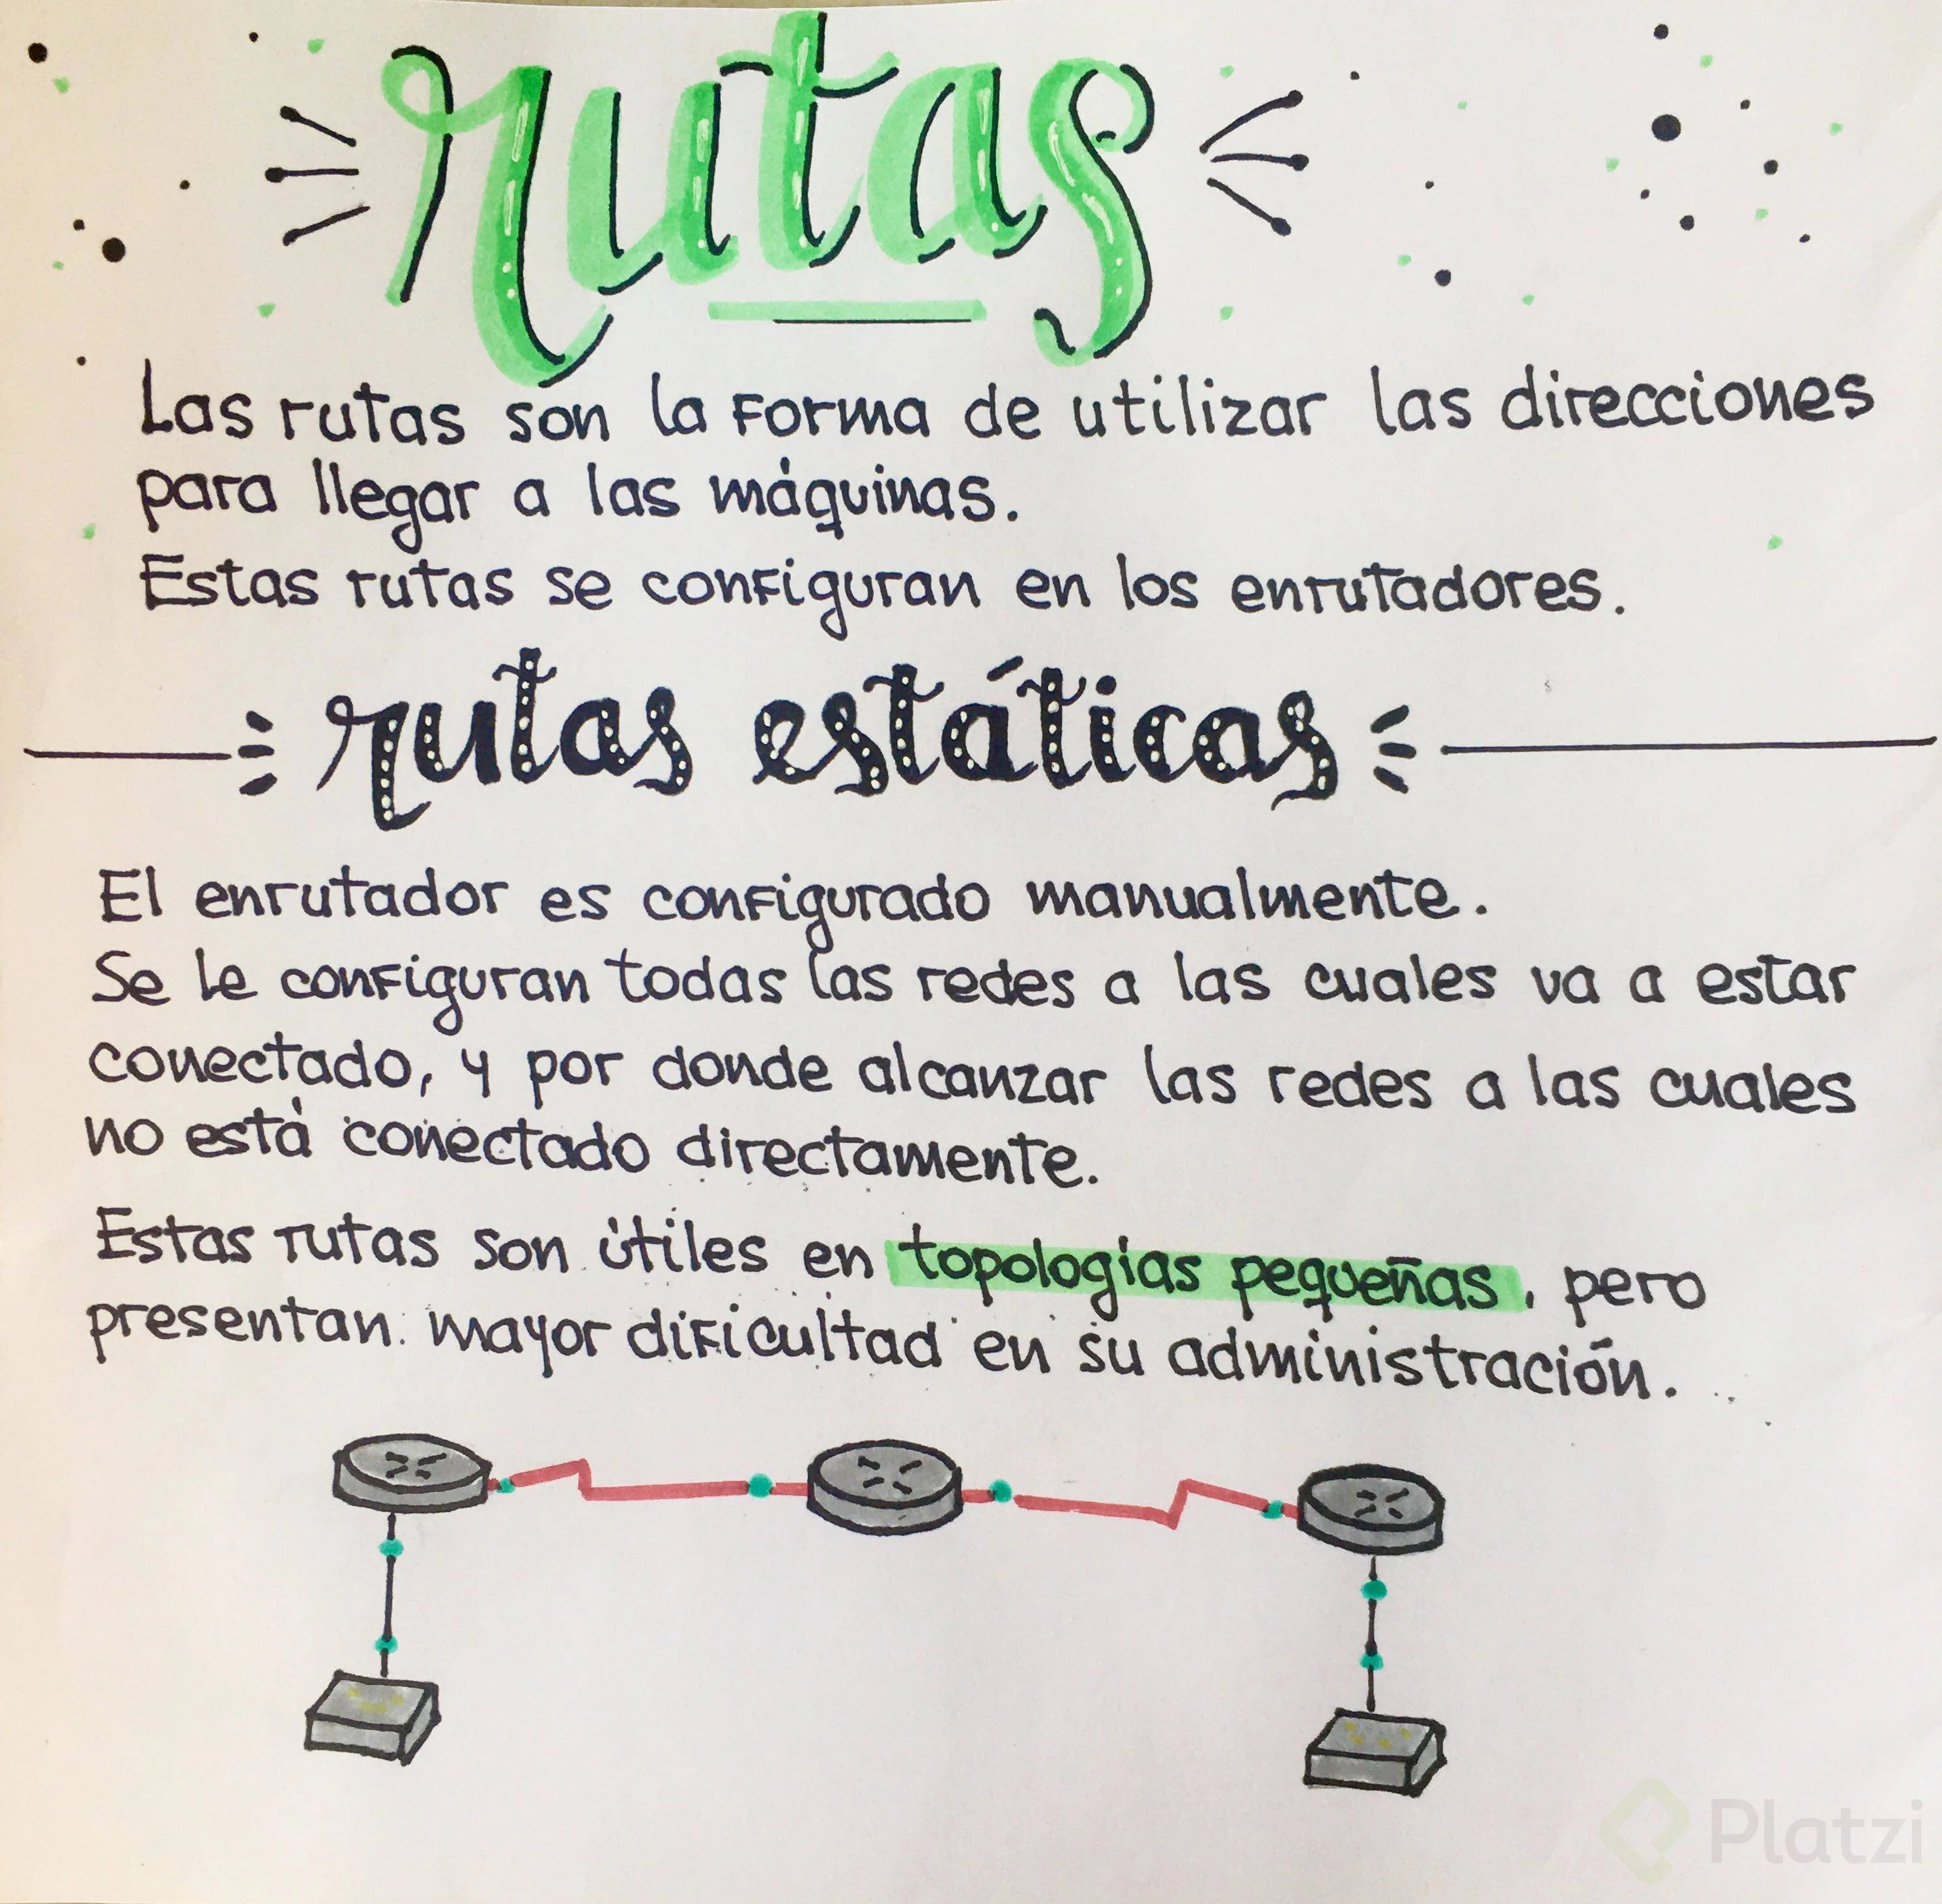 rutas
Las rutas son la forma de utilizar las direcciones
para llegar a las máquinas.
Estas rutas se configuran en los enrutadores.
rutas estáticas
El enrutador es configurado manualmente.
Se le configuran todas las redes a las cuales va a estar
conectado, y por donde alcanzar las redes a las cuales
no está conectado directamente.
Estas rutas son útiles en topologías pequeñas, pero
presentan mayor dificultad en su administración.
Platzi